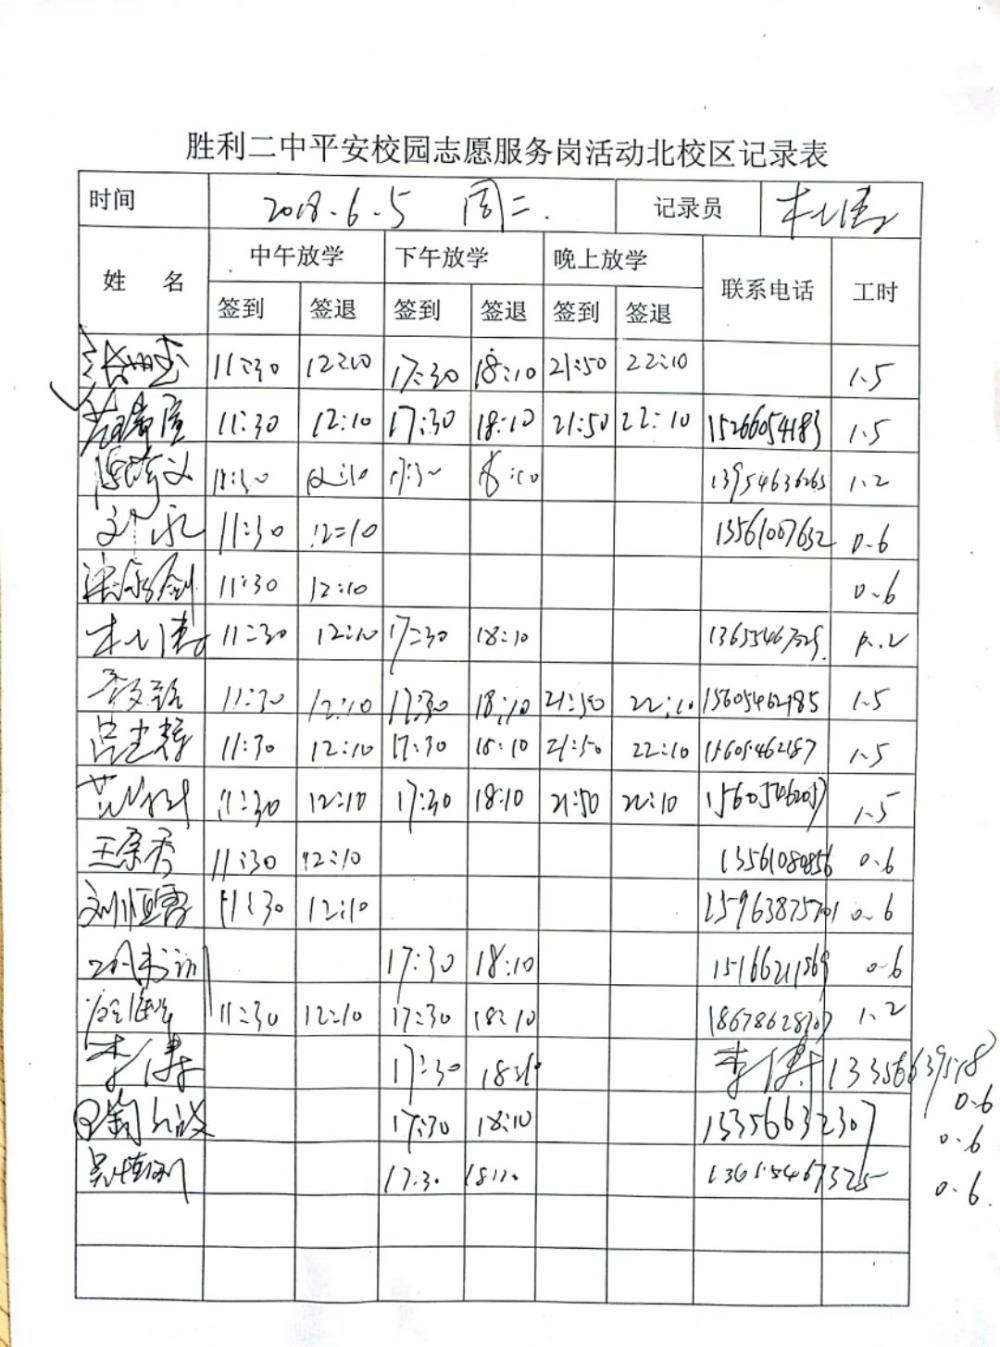 胜利二中平安校园志愿服务岗活动北校区记录表
时间 2018.6.5 周二. 记录员
姓 名 中午放学 下午放学 晚上放学 联系电话 工时
签到 签退 签到 签退 签到 签退
11:30 12:10 17:30 18:10 21:50 22:10 1.5
11:30 12:10 17:30 18:10 21:50 22:10 15266054183 1.5
11:30 12:10 17:30 18:10 13954636265 1.2
刘永 11:30 12:10 13561007632 0.6
梁永剑 11:30 12:10 0.6
11:30 12:10 17:30 18:10 1.2
11:30 12:10 17:30 18:10 21:50 22:10 15605462185 1.5
吕志静 11:30 12:10 17:30 18:10 21:50 22:10 15605462187 1.5
11:30 12:10 17:30 18:10 21:50 22:10 1.5
王宗秀 11:30 12:10 13561080856 0.6
刘恒雪 11:30 12:10 15963875701 0.6
17:30 18:10 15166211569 0.6
11:30 12:10 17:30 18:10 18678628707 1.2
李倩 17:30 18:10 李倩 0.6
17:30 18:10 13356632307 0.6
17:30 18:10 13615467325 0.6